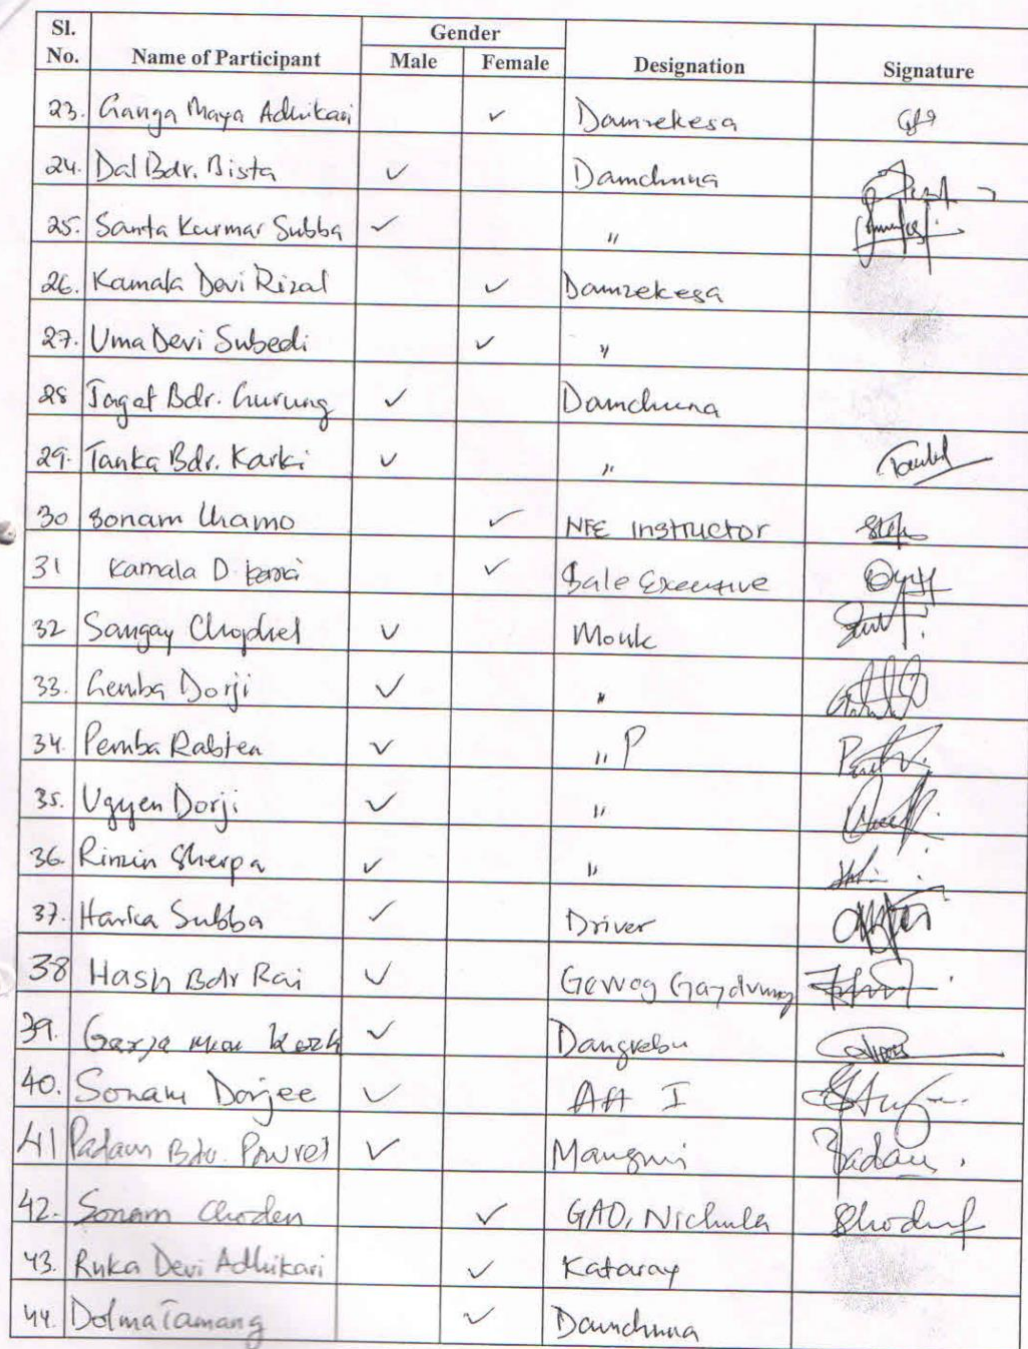 Sl. No. Name of Participant Gender Designation Signature
Male Female
23. Ganga Maya Adhikari ✓ Damzekesa
24. Dal Bdr. Bista ✓ Damchuna
25. Santa Kurmar Subba ✓ "
26. Kamala Devi Rizal ✓ Damzekesa
27. Uma Devi Subedi ✓ "
28 Jagat Bdr. Gurung ✓ Damchuna
29. Tanka Bdr. Karki ✓ "
30 Sonam Lhamo ✓ NFE Instructor
31 Kamala D. ✓ Sale Executive
32 Sangay Chophel ✓ Monk
33. Gemba Dorji ✓ "
34. Pemba Rabten ✓ " P
35. Ugyen Dorji ✓ "
36. Rinzin Sherpa ✓ "
37. Harka Subba ✓ Driver
38 Hash Bdr Rai ✓ Gewog Gaydrung
39. ✓
40. Sonam Dorjee ✓ AA I
41 Padam Bdr. Powrel ✓ Mangmi Padam.
42. Sonam Choden ✓ GAO, Nichula
43. Ruka Devi Adhikari ✓ Kataray
44. Dolma Tamang ✓ Damchuna